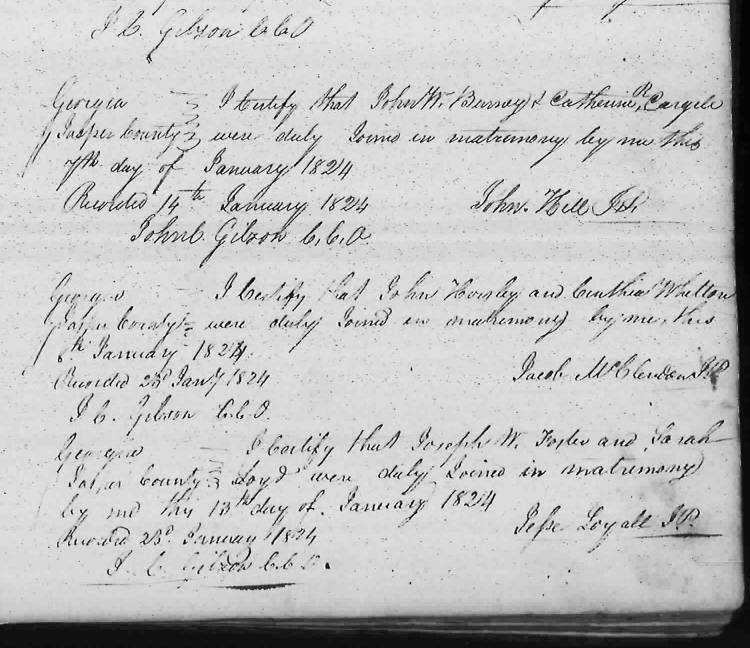 J C. Gibson C.C.O
Georgia I Certify that John W. Burney & Catherine R. Cargile
Jasper County were duly Joined in matrimony by me this
7th day of January 1824
Recorded 14th January 1824 John Hill J.P.
John C. Gibson C.C.O.
Georgia I Certify that John Horsley and Cinthia Whelton
Jasper County were duly Joined in matrimony by me, this
8th January 1824.
Recorded 23d Jany 1824 Jacob McClendon J.P.
J C. Gibson C.C.O.
Georgia I Certify that Joseph W. Foster and Sarah
Jasper County Loyd were duly Joined in matrimony
by me this 13th day of January 1824
Recorded 23d January 1824 Jesse Loyall J.P.
J. C. Gibson C.C.O.